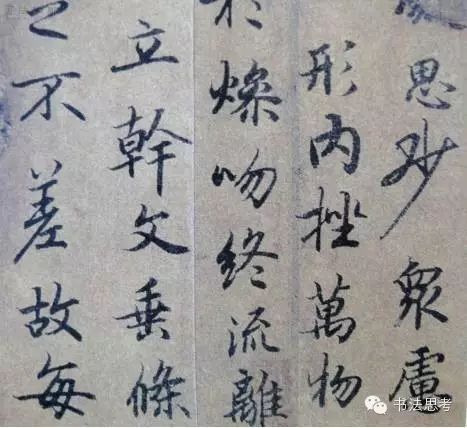 思妙衆慮
形内挫萬物
於燥吻終流離
立幹文垂條
之不差故每
书法思考